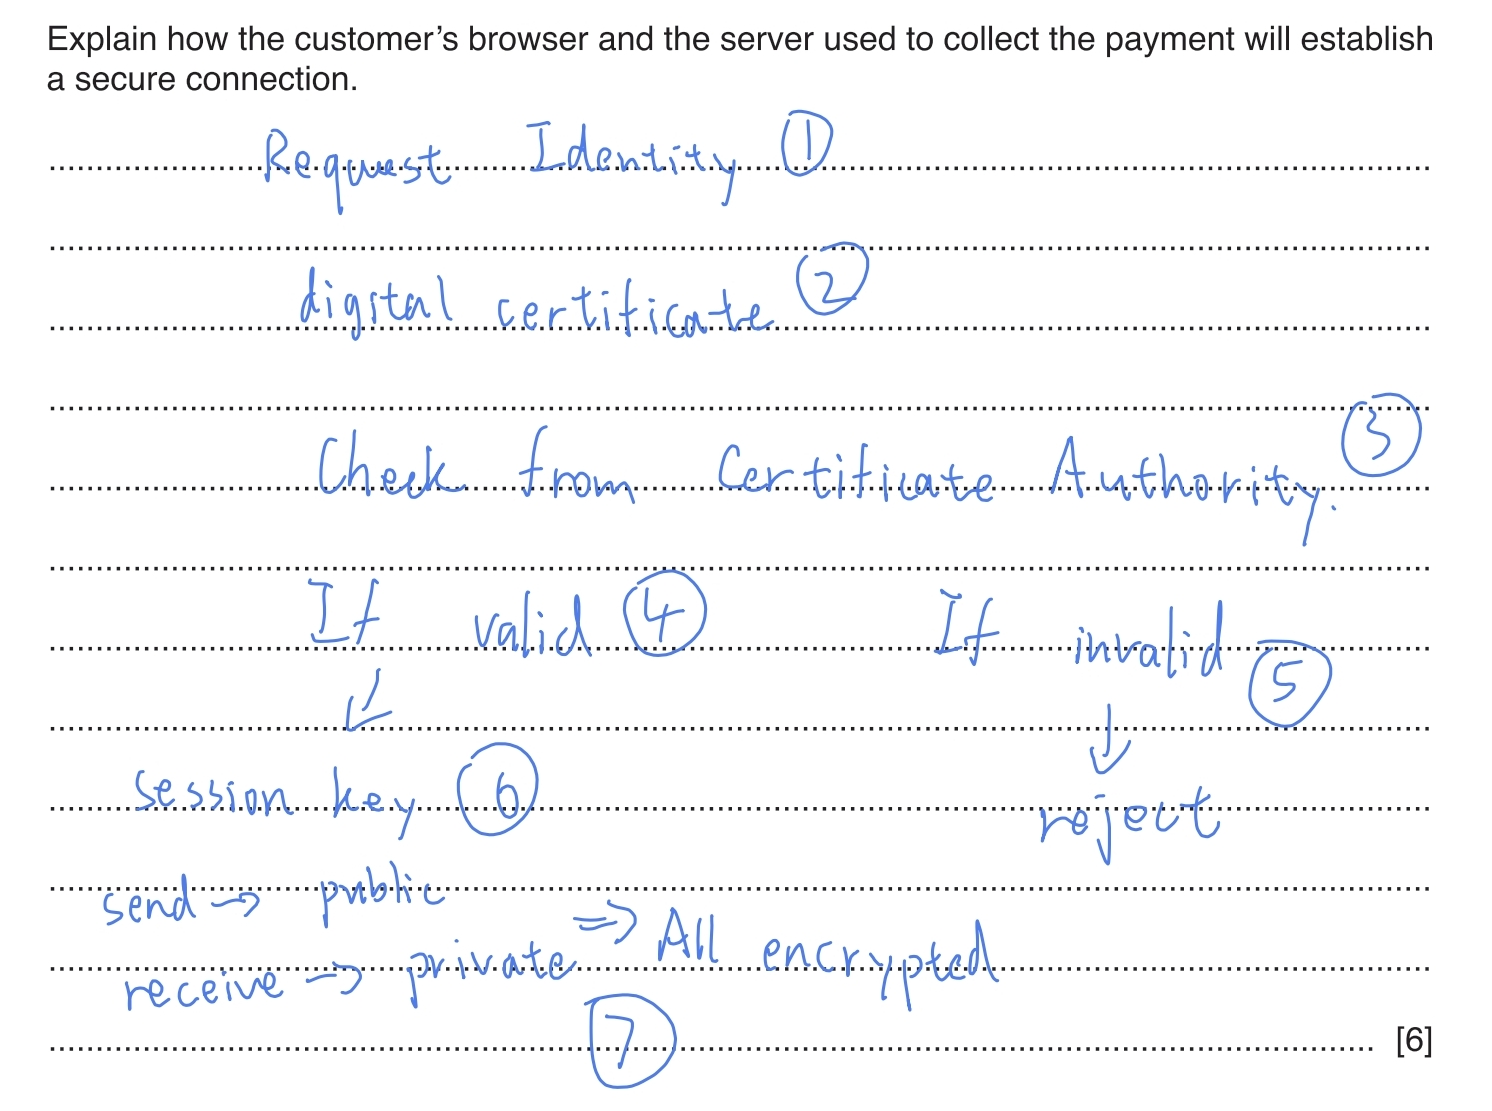 Explain how the customer’s browser and the server used to collect the payment will establish
a secure connection.
Request Identity ①
digital certificate ②
Check from Certificate Authority. ③
If valid ④ If invalid ⑤
↓ ↓
session key ⑥ reject
send → public
receive → private ⇒ All encrypted
⑦
[6]